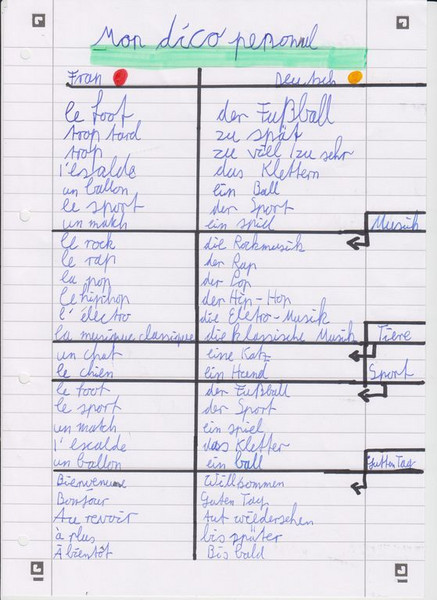 Mon dico personnel
Fran Deutsch
le foot der Fußball
trop tard zu spät
trop zu viel /zu sehr
l'esalde das Klettern
un ballon Ein Ball
le sport der Sport
un match ein spiel
Musik
le rock die Rokmusik
le rap der Rap
la pop der Pop
le hiphop der Hip-Hop
l'électro die Eletro-Musik
la musique classique die klassische Musik
Tiere
un chat eine Katz
le chien ein Hund
Sport
le foot der Fußball
le sport der Sport
un match ein spiel
l'escalde das Kletter
un ballon ein ball
Gutten Tag
Bienvenue Willkommen
Bonjour Guten Tag
Au revoir Auf wiedersehen
à plus bis später
À bientôt Bis bald